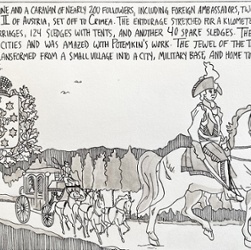 NE AND A CARAVAN OF NEARLY 200 FOLLOWERS, INCLUDING FOREIGN AMBASSADORS, TW
II OF AUSTRIA, SET OFF TO CRIMEA. THE ENTOURAGE STRETCHED FOR A KILOMETE
RRIAGES, 124 SLEDGES WITH TENTS, AND ANOTHER 40 SPARE SLEDGES. THE
CITIES AND WAS AMAZED WITH POTEMKIN'S WORK. THE JEWEL OF THE T
RANSFORMED FROM A SMALL VILLAGE INTO A CITY, MILITARY BASE, AND HOME TO